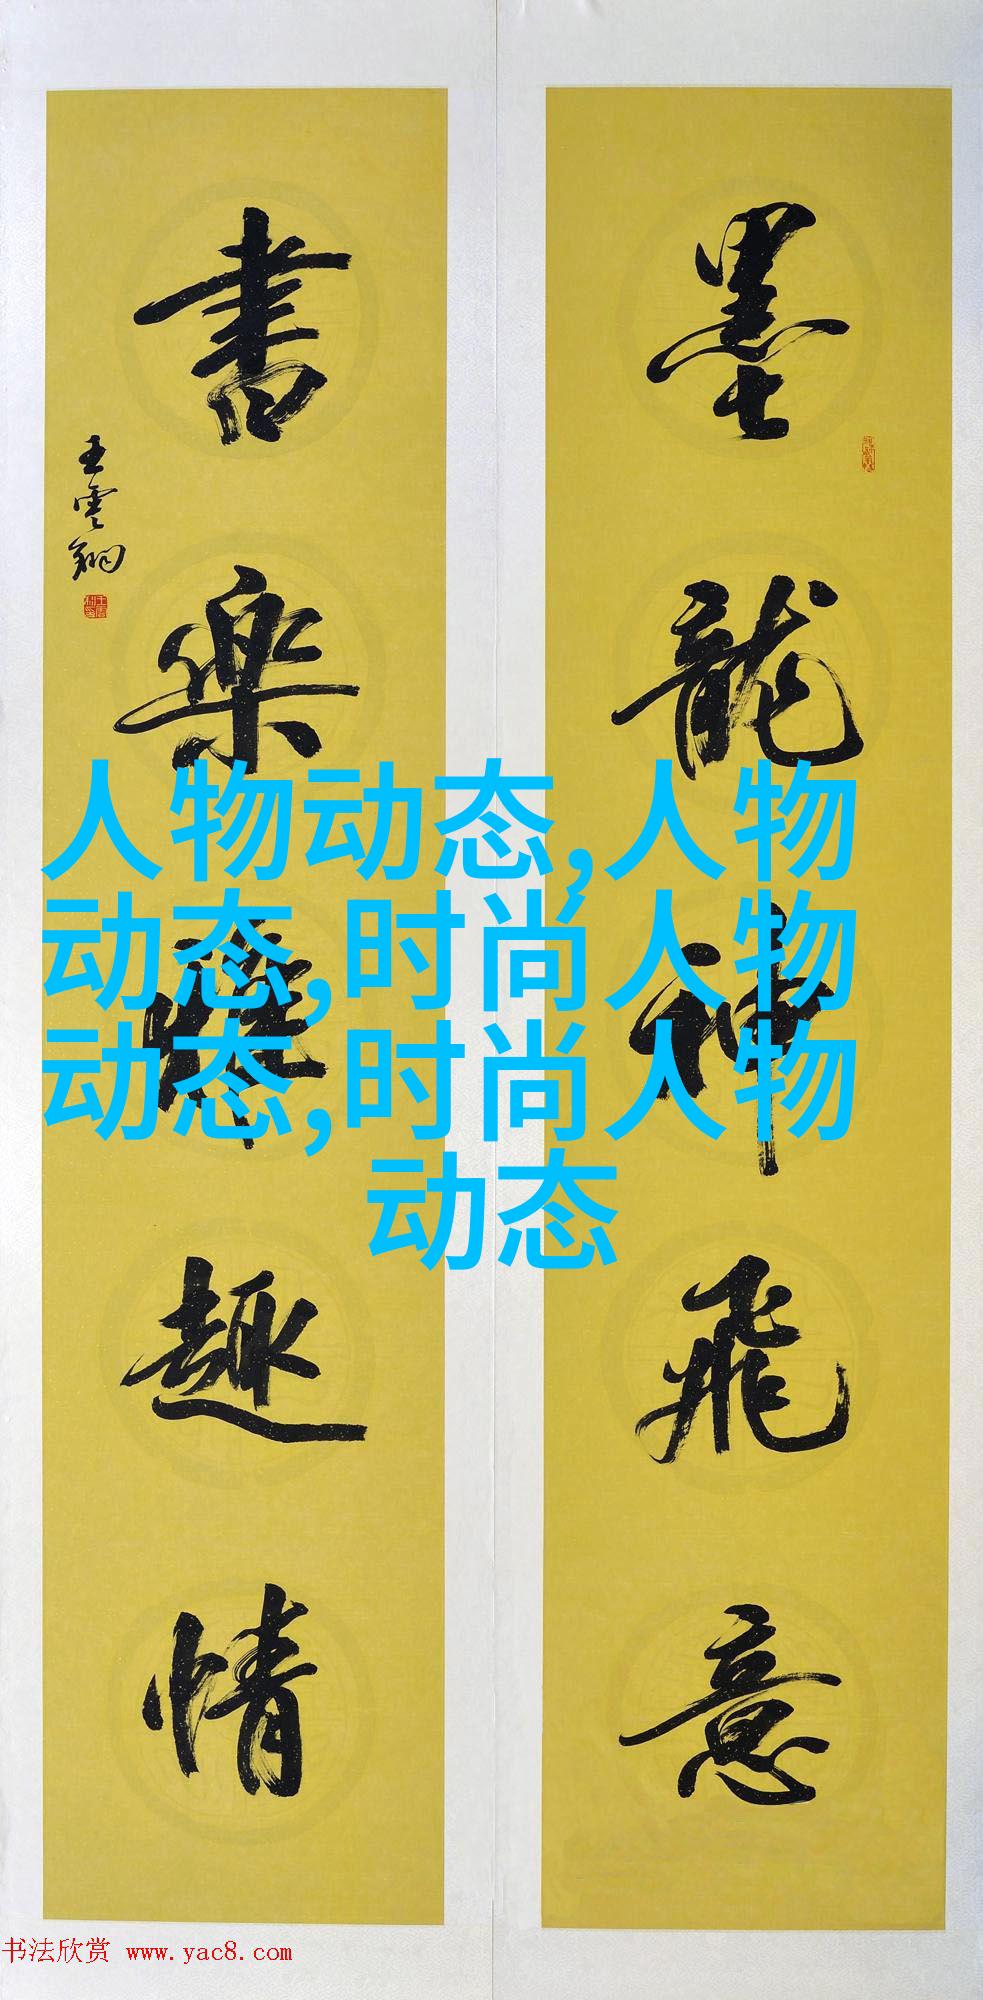 墨龍神飛意
書樂雅趣情
王雲翔
人物动态,人物
动态,时尚人物
动态,时尚人物
动态
书法欣赏 www.yac8.com